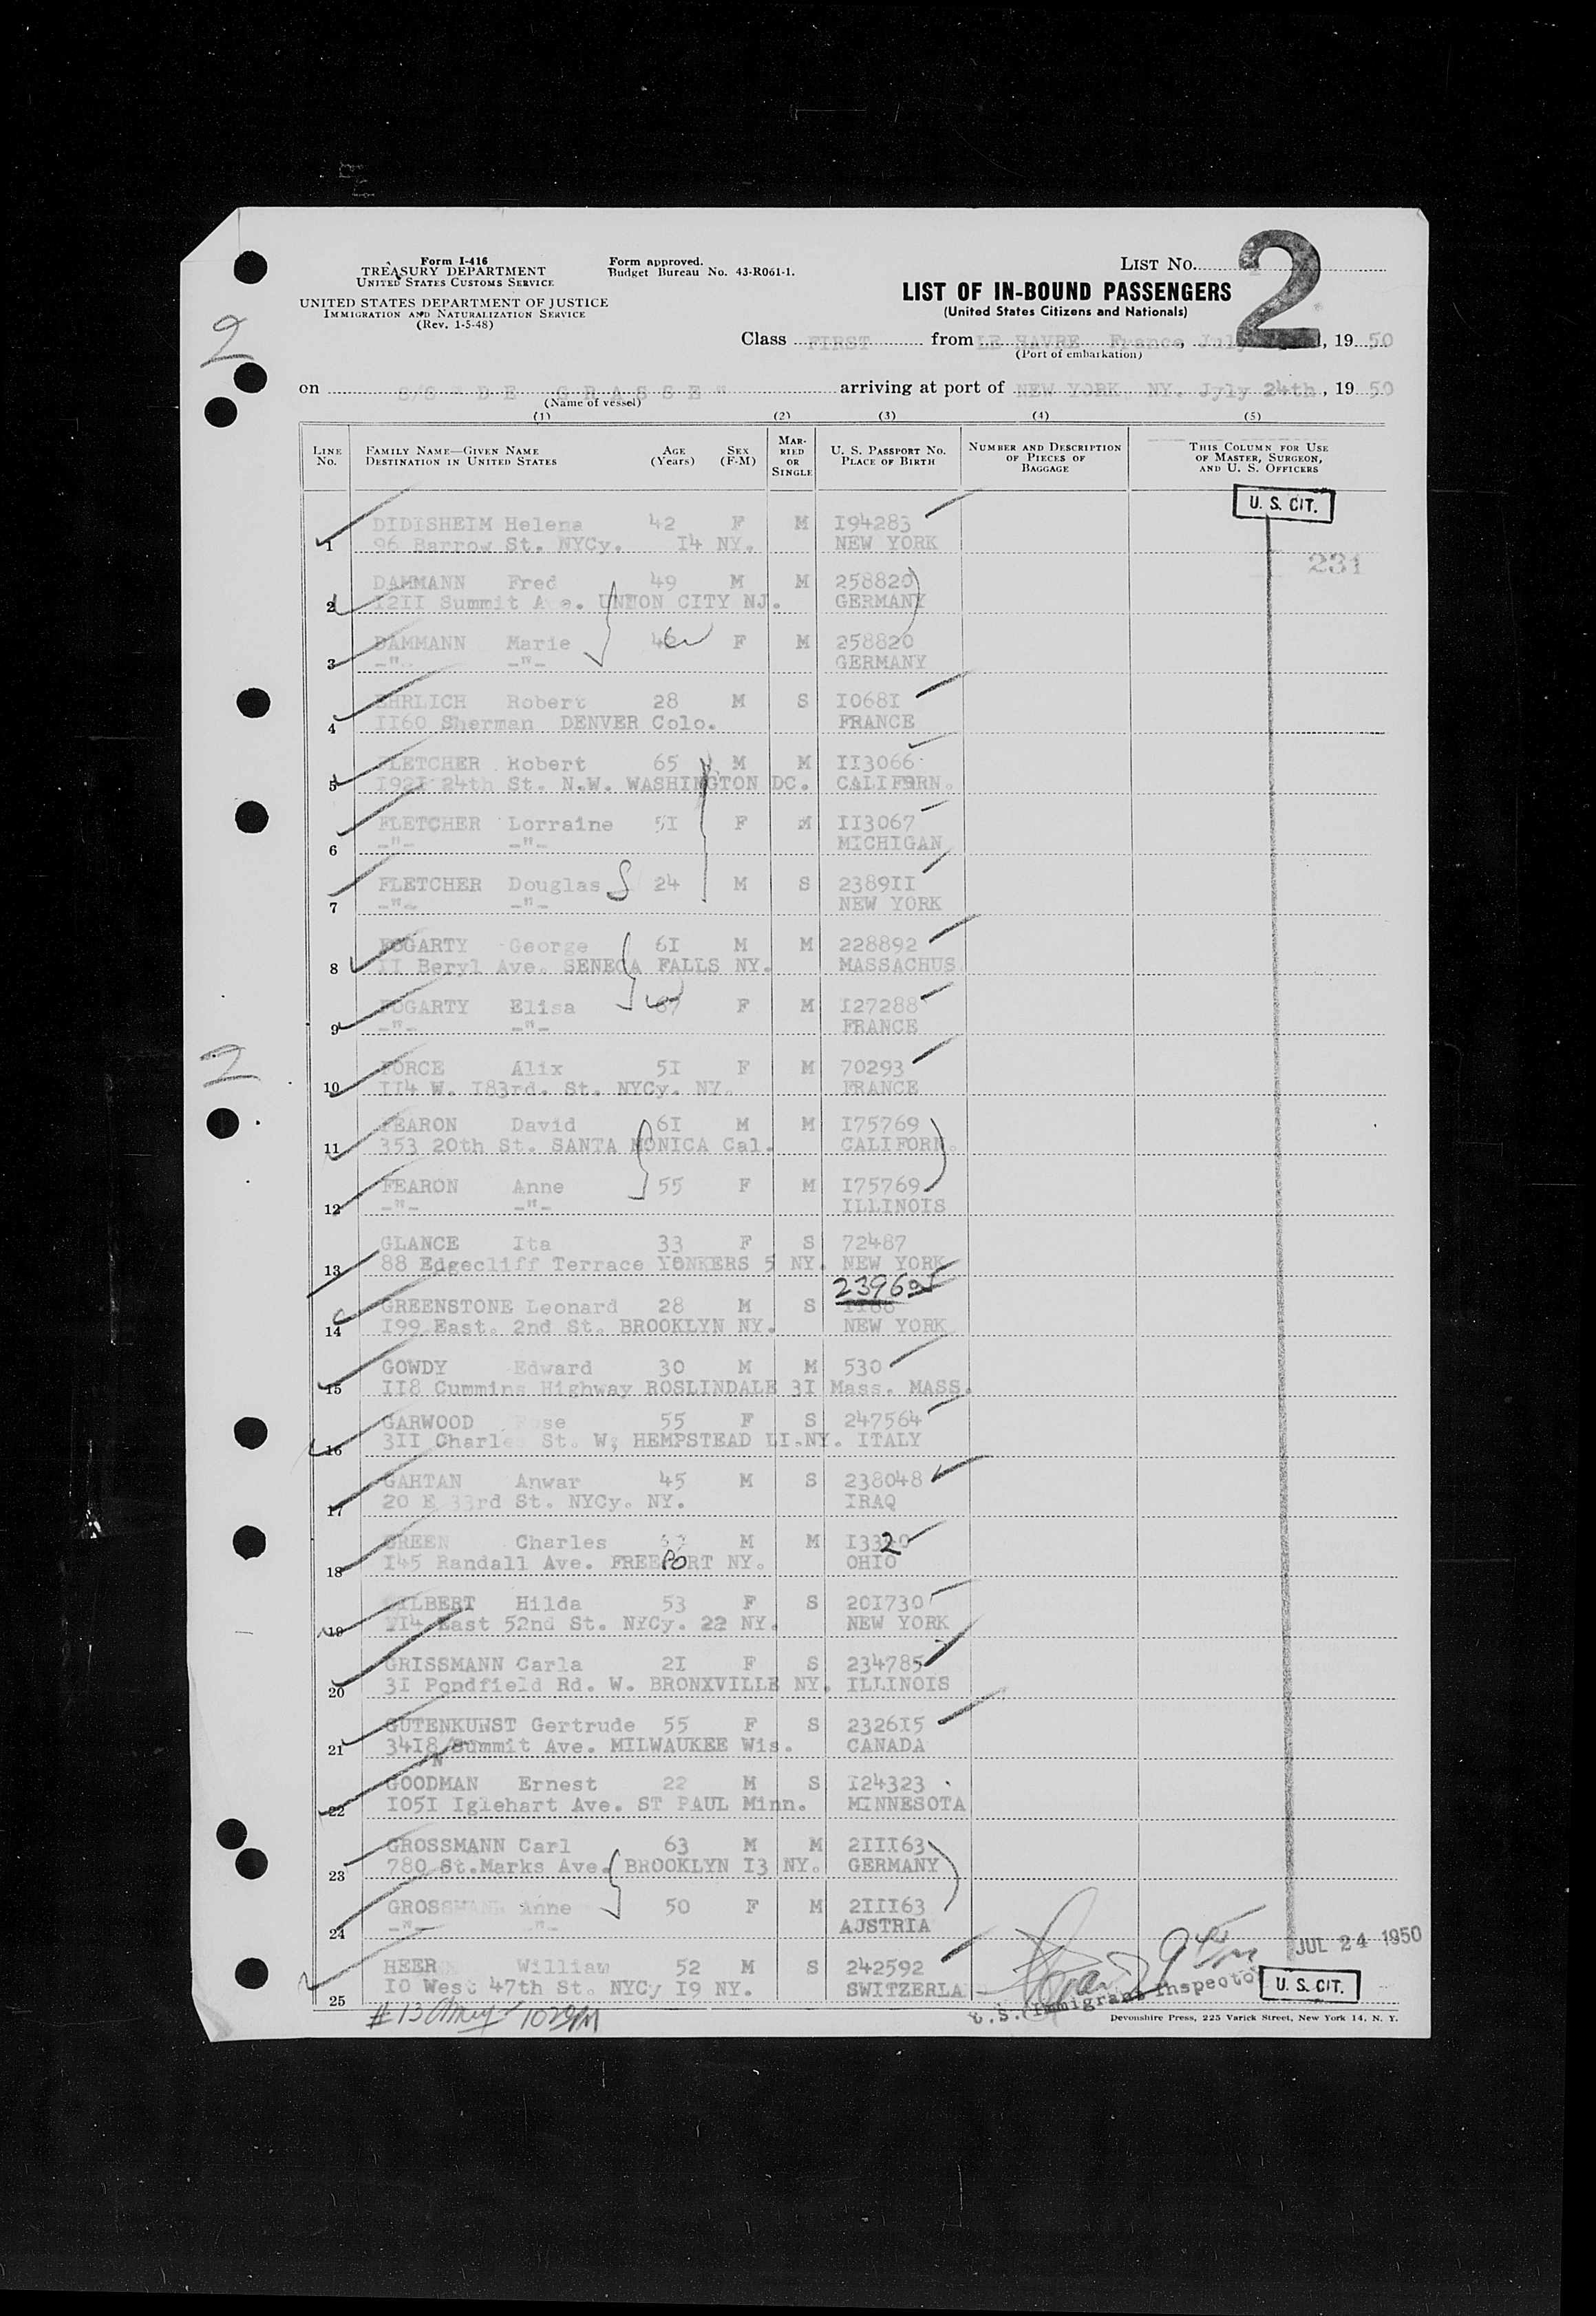 Form I-416
TREASURY DEPARTMENT
UNITED STATES CUSTOMS SERVICE
UNITED STATES DEPARTMENT OF JUSTICE
IMMIGRATION AND NATURALIZATION SERVICE
(Rev. 1-5-48)
Form approved.
Budget Bureau No. 43-R061-1.
LIST NO. 2
LIST OF IN-BOUND PASSENGERS
(United States Citizens and Nationals)
Class FIRST from LE HAVRE France, July , 19 50
(Port of embarkation)
on S/S " DE GRASSE " arriving at port of NEW YORK, NY. Jyly 24th, 19 50
(Name of vessel)
(1) (2) (3) (4) (5)
LINE NO. FAMILY NAME—GIVEN NAME DESTINATION IN UNITED STATES AGE (Years) SEX (F-M) MARRIED OR SINGLE U. S. PASSPORT NO. PLACE OF BIRTH NUMBER AND DESCRIPTION OF PIECES OF BAGGAGE THIS COLUMN FOR USE OF MASTER, SURGEON, AND U. S. OFFICERS
U. S. CIT.
DIDISHEIM Helena 42 F M I94283
1 96 Barrow St. NYCy. I4 NY. NEW YORK
231
DAMMANN Fred 49 M M 258820
2 I2II Summit Ave. UNION CITY NJ. GERMANY
DAMMANN Marie F M 258820
3 -"- -"- GERMANY
EHRLICH Robert 28 M S I068I
4 II60 Sherman DENVER Colo. FRANCE
FLETCHER Robert 65 M M II3066
5 I92I 24th St. N.W. WASHINGTON DC. CALIFORN.
FLETCHER Lorraine 5I F M II3067
6 -"- -"- MICHIGAN
FLETCHER Douglas 24 M S 2389II
7 -"- -"- NEW YORK
FOGARTY George 6I M M 228892
8 II Beryl Ave. SENECA FALLS NY. MASSACHUS
FOGARTY Elisa F M I27288
9 -"- -"- FRANCE
FORCE Alix 5I F M 70293
10 II4 W. I83rd. St. NYCy. NY. FRANCE
FEARON David 6I M M I75769
11 353 20th St. SANTA MONICA Cal. CALIFORN.
FEARON Anne 55 F M I75769
12 -"- -"- ILLINOIS
GLANCE Ita 33 F S 72487
13 88 Edgecliff Terrace YONKERS 5 NY. NEW YORK
GREENSTONE Leonard 28 M S
14 I99 East. 2nd St. BROOKLYN NY. NEW YORK
GOWDY Edward 30 M M 530
15 II8 Cummins Highway ROSLINDALE 3I Mass. MASS.
GARWOOD Rose 55 F S 247564
16 3II Charles St. W; HEMPSTEAD LI.NY. ITALY
GAHTAN Anwar 45 M S 238048
17 20 E 33rd St. NYCy. NY. IRAQ
GREEN Charles M M
18 I45 Randall Ave. FREEPORT NY. OHIO
GILBERT Hilda 53 F S 20I730
19 East 52nd St. NYCy. 22 NY. NEW YORK
GRISSMANN Carla 2I F S 234785
20 3I Pondfield Rd. W. BRONXVILLE NY. ILLINOIS
GUTENKUNST Gertrude 55 F S 2326I5
21 34I8 N Summit Ave. MILWAUKEE Wis. CANADA
GOODMAN Ernest 22 M S I24323
22 I05I Iglehart Ave. ST PAUL Minn. MINNESOTA
GROSSMANN Carl 63 M M 2III63
23 780 St.Marks Ave. BROOKLYN I3 NY. GERMANY
GROSSMANN Anne 50 F M 2III63
24 -"- -"- AUSTRIA
JUL 24 1950
HEER William 52 M S 242592
25 I0 West 47th St. NYCy I9 NY. SWITZERLA
U. S. Immigrant Inspector
U. S. CIT.
Devonshire Press, 225 Varick Street, New York 14, N. Y.
2
2